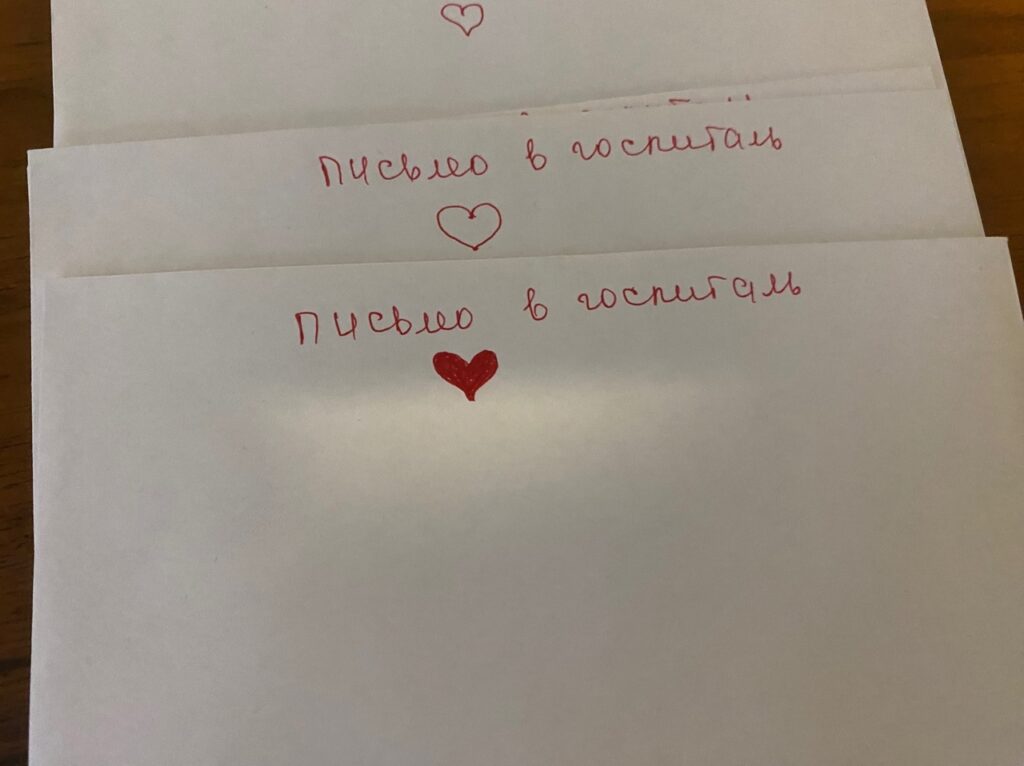 Письмо в госпиталь
Письмо в госпиталь